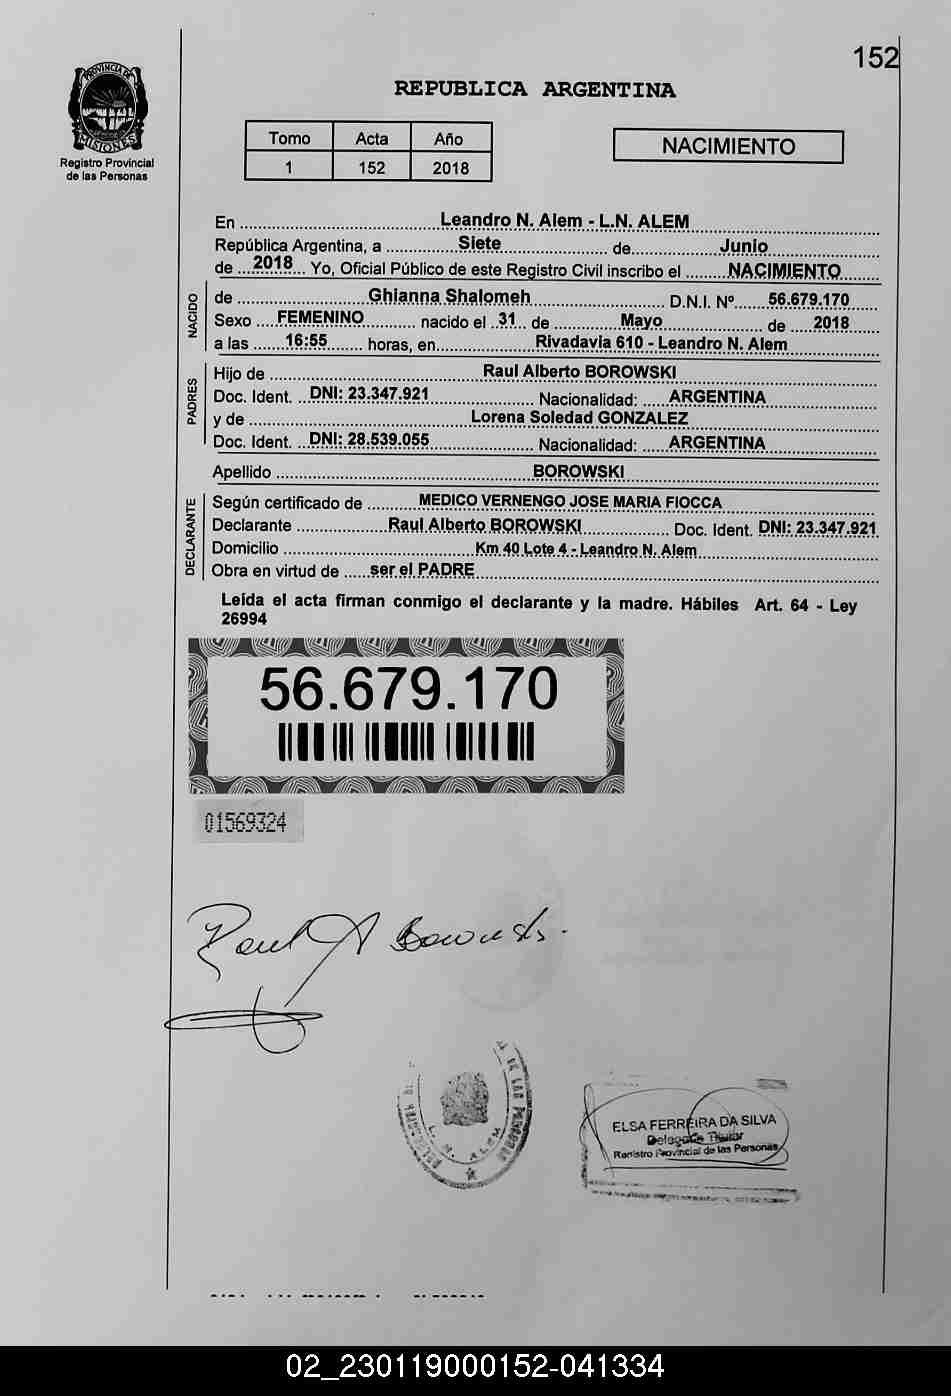 152
PROVINCIA DE
MISIONES
Registro Provincial
de las Personas
REPUBLICA ARGENTINA
Tomo Acta Año
1 152 2018
NACIMIENTO
En Leandro N. Alem - L.N. ALEM
República Argentina, a Siete de Junio
de 2018 Yo, Oficial Público de este Registro Civil inscribo el NACIMIENTO
NACIDO
de Ghianna Shalomeh D.N.I. Nº 56.679.170
Sexo FEMENINO nacido el 31 de Mayo de 2018
a las 16:55 horas, en Rivadavia 610 - Leandro N. Alem
PADRES
Hijo de Raul Alberto BOROWSKI
Doc. Ident. DNI: 23.347.921 Nacionalidad: ARGENTINA
y de Lorena Soledad GONZALEZ
Doc. Ident. DNI: 28.539.055 Nacionalidad: ARGENTINA
Apellido BOROWSKI
DECLARANTE
Según certificado de MEDICO VERNENGO JOSE MARIA FIOCCA
Declarante Raul Alberto BOROWSKI Doc. Ident. DNI: 23.347.921
Domicilio Km 40 Lote 4 - Leandro N. Alem
Obra en virtud de ser el PADRE
Leida el acta firman conmigo el declarante y la madre. Hábiles Art. 64 - Ley
26994
56.679.170
01569324
Raul A Borowski
DE LAS PERSONAS
L. N. ALEM
ELSA FERREIRA DA SILVA
Delegada Titular
Registro Provincial de las Personas
02_230119000152-041334